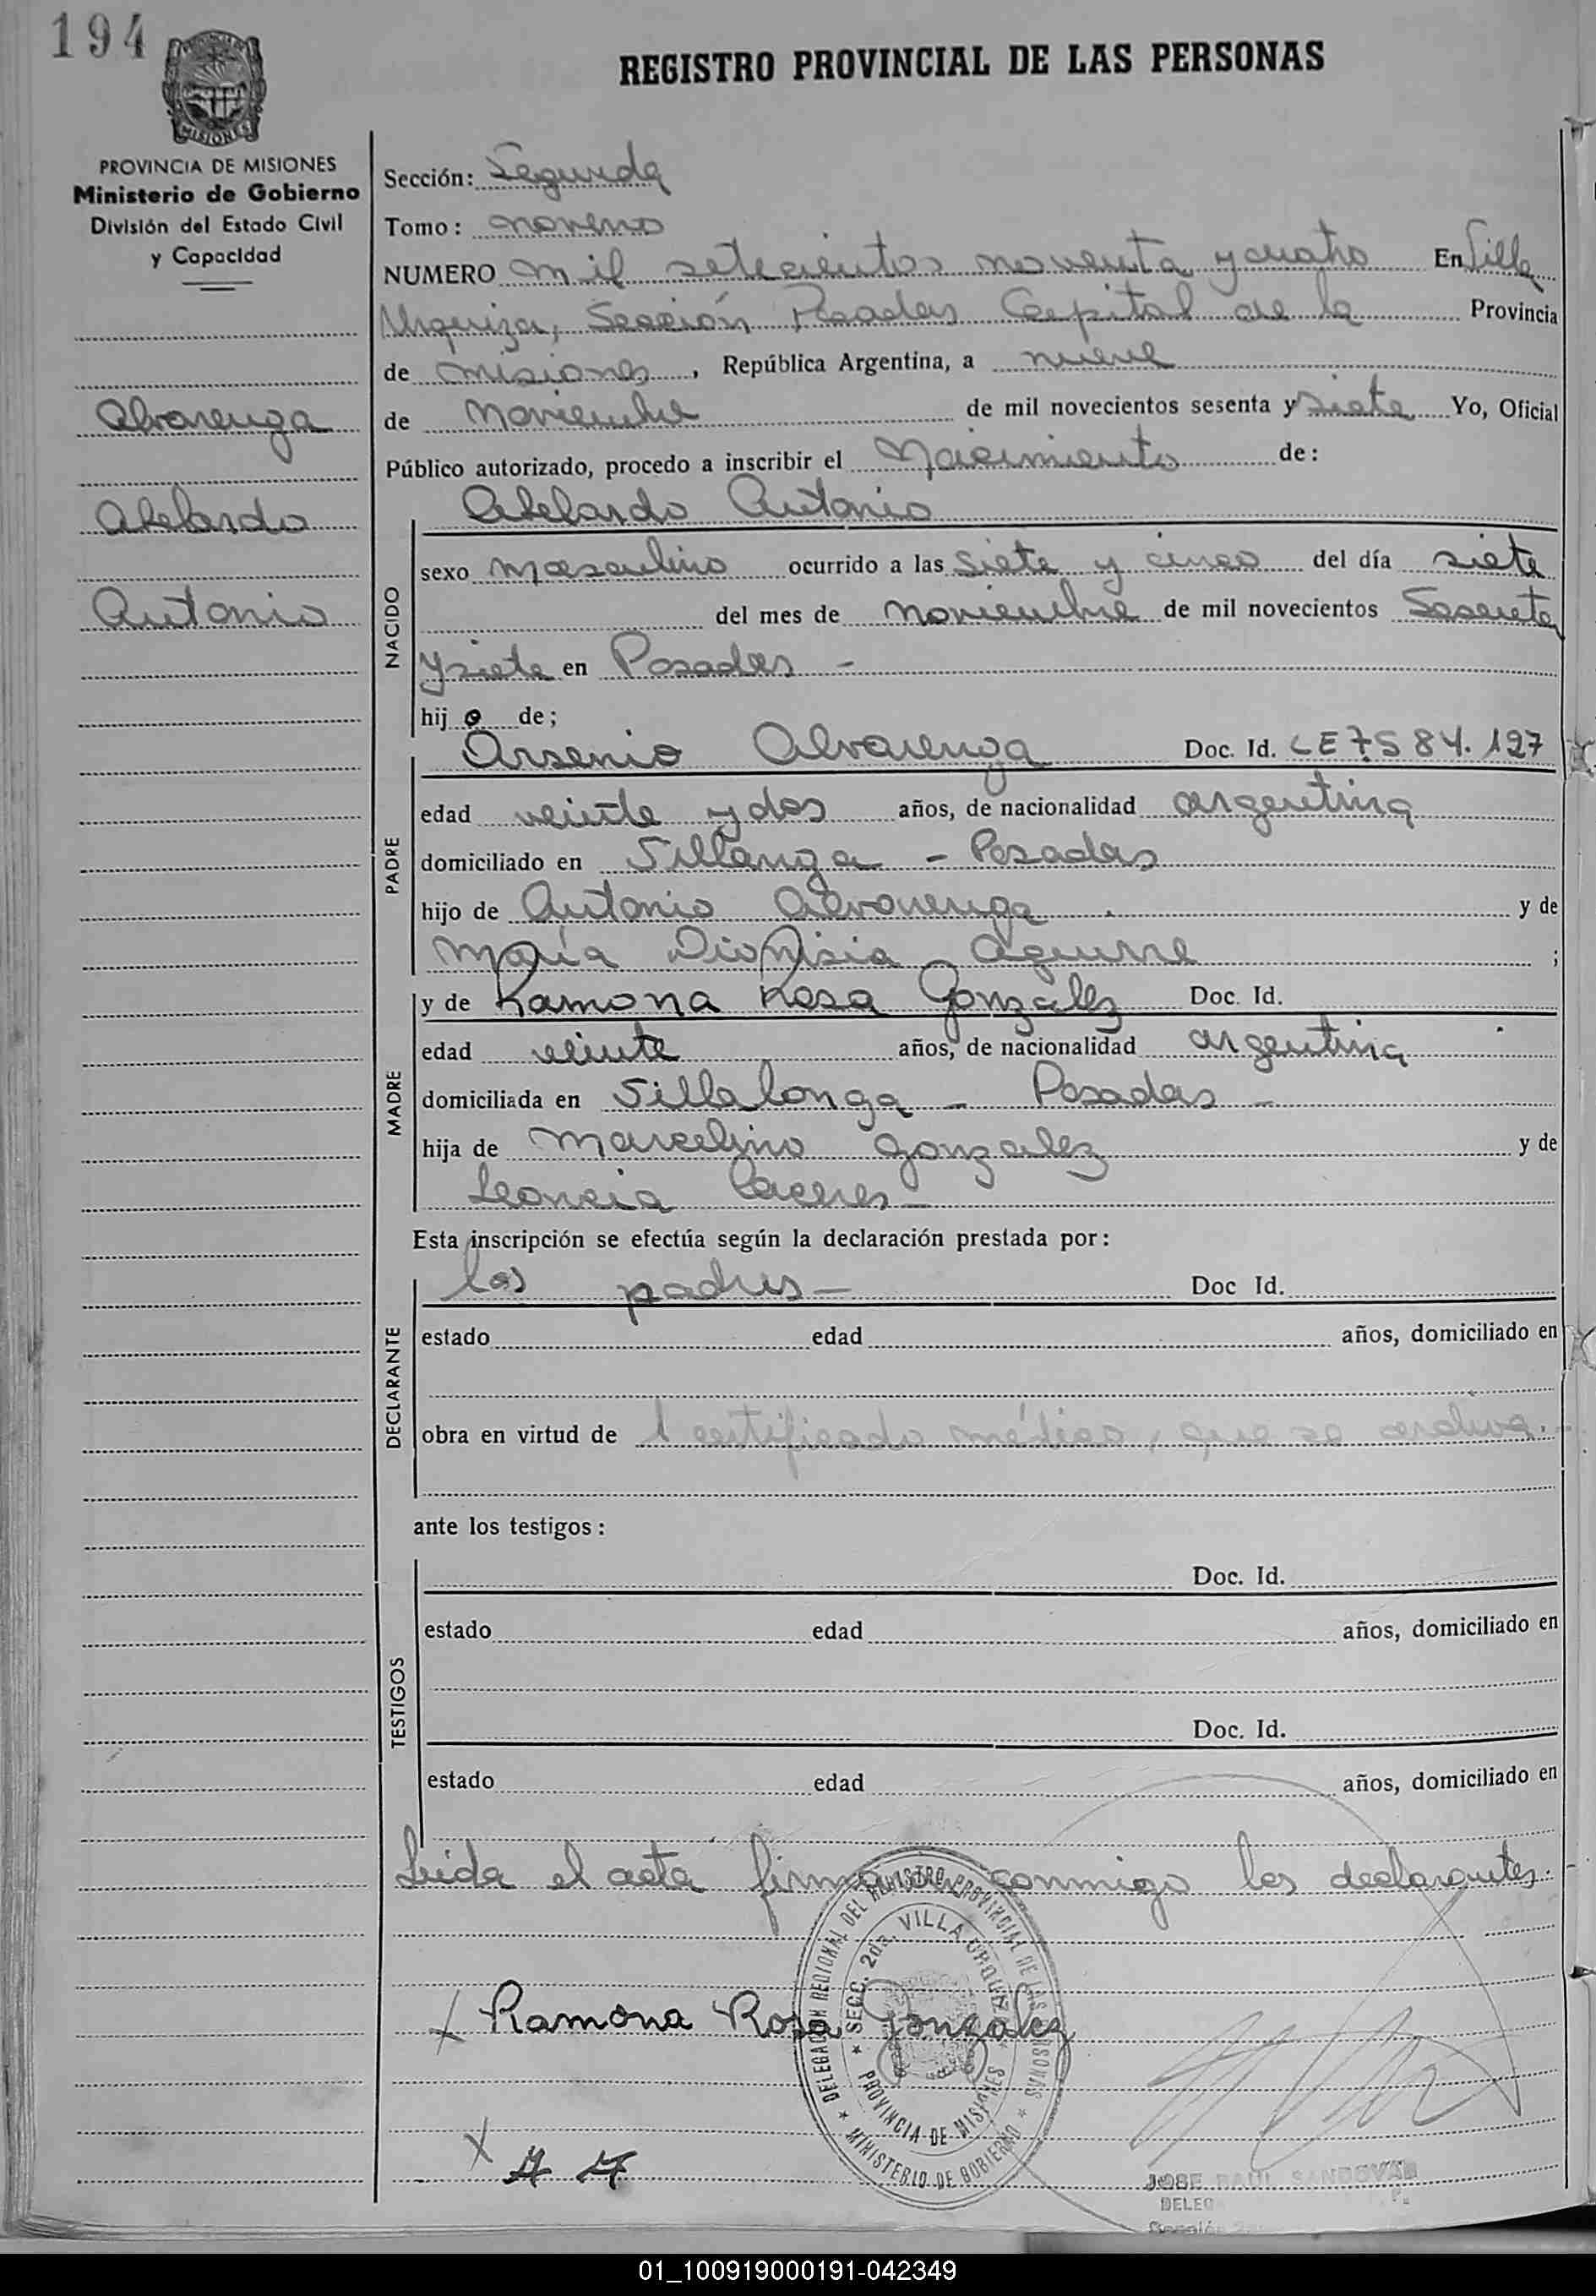 194
REGISTRO PROVINCIAL DE LAS PERSONAS
MISIONES
PROVINCIA DE MISIONES
Ministerio de Gobierno
División del Estado Civil
y Capacidad
Alvarenga
Abelardo
Antonio
Sección: Segunda
Tomo: noveno
NUMERO mil setecientos noventa y cuatro En Villa
Urquiza, Sección Posadas Capital de la Provincia
de misiones, República Argentina, a nueve
de Noviembre de mil novecientos sesenta y siete Yo, Oficial
Público autorizado, procedo a inscribir el Nacimiento de:
Abelardo Antonio
NACIDO
sexo masculino ocurrido a las siete y cinco del día siete
del mes de noviembre de mil novecientos Sesenta
y siete en Posadas -
hijo de;
PADRE
Arsenio Alvarenga Doc. Id. LE 7584.127
edad veinte y dos años, de nacionalidad argentina
domiciliado en - Posadas
hijo de Antonio Alvarenga y de
María Dionisia Aguirre ;
MADRE
y de Ramona Rosa González Doc. Id.
edad veinte años, de nacionalidad argentina
domiciliada en Villalonga - Posadas -
hija de Marcelino Gonzalez y de
Leoncia Caceres -
Esta inscripción se efectúa según la declaración prestada por:
DECLARANTE
los padres - Doc Id.
estado edad años, domiciliado en
obra en virtud de 1 certificado médico, que se archiva.
ante los testigos:
TESTIGOS
Doc. Id.
estado edad años, domiciliado en
Doc. Id.
estado edad años, domiciliado en
Leida el acta firman conmigo los declarantes.
DELEGACION REGIONAL DEL REGISTRO PROVINCIAL DE LAS PERSONAS
SECC. 2da. VILLA URQUIZA
PROVINCIA DE MISIONES
MINISTERIO DE GOBIERNO
X Ramona Rosa González
X A A
JOSE RAUL SANDOVAL
01_100919000191-042349